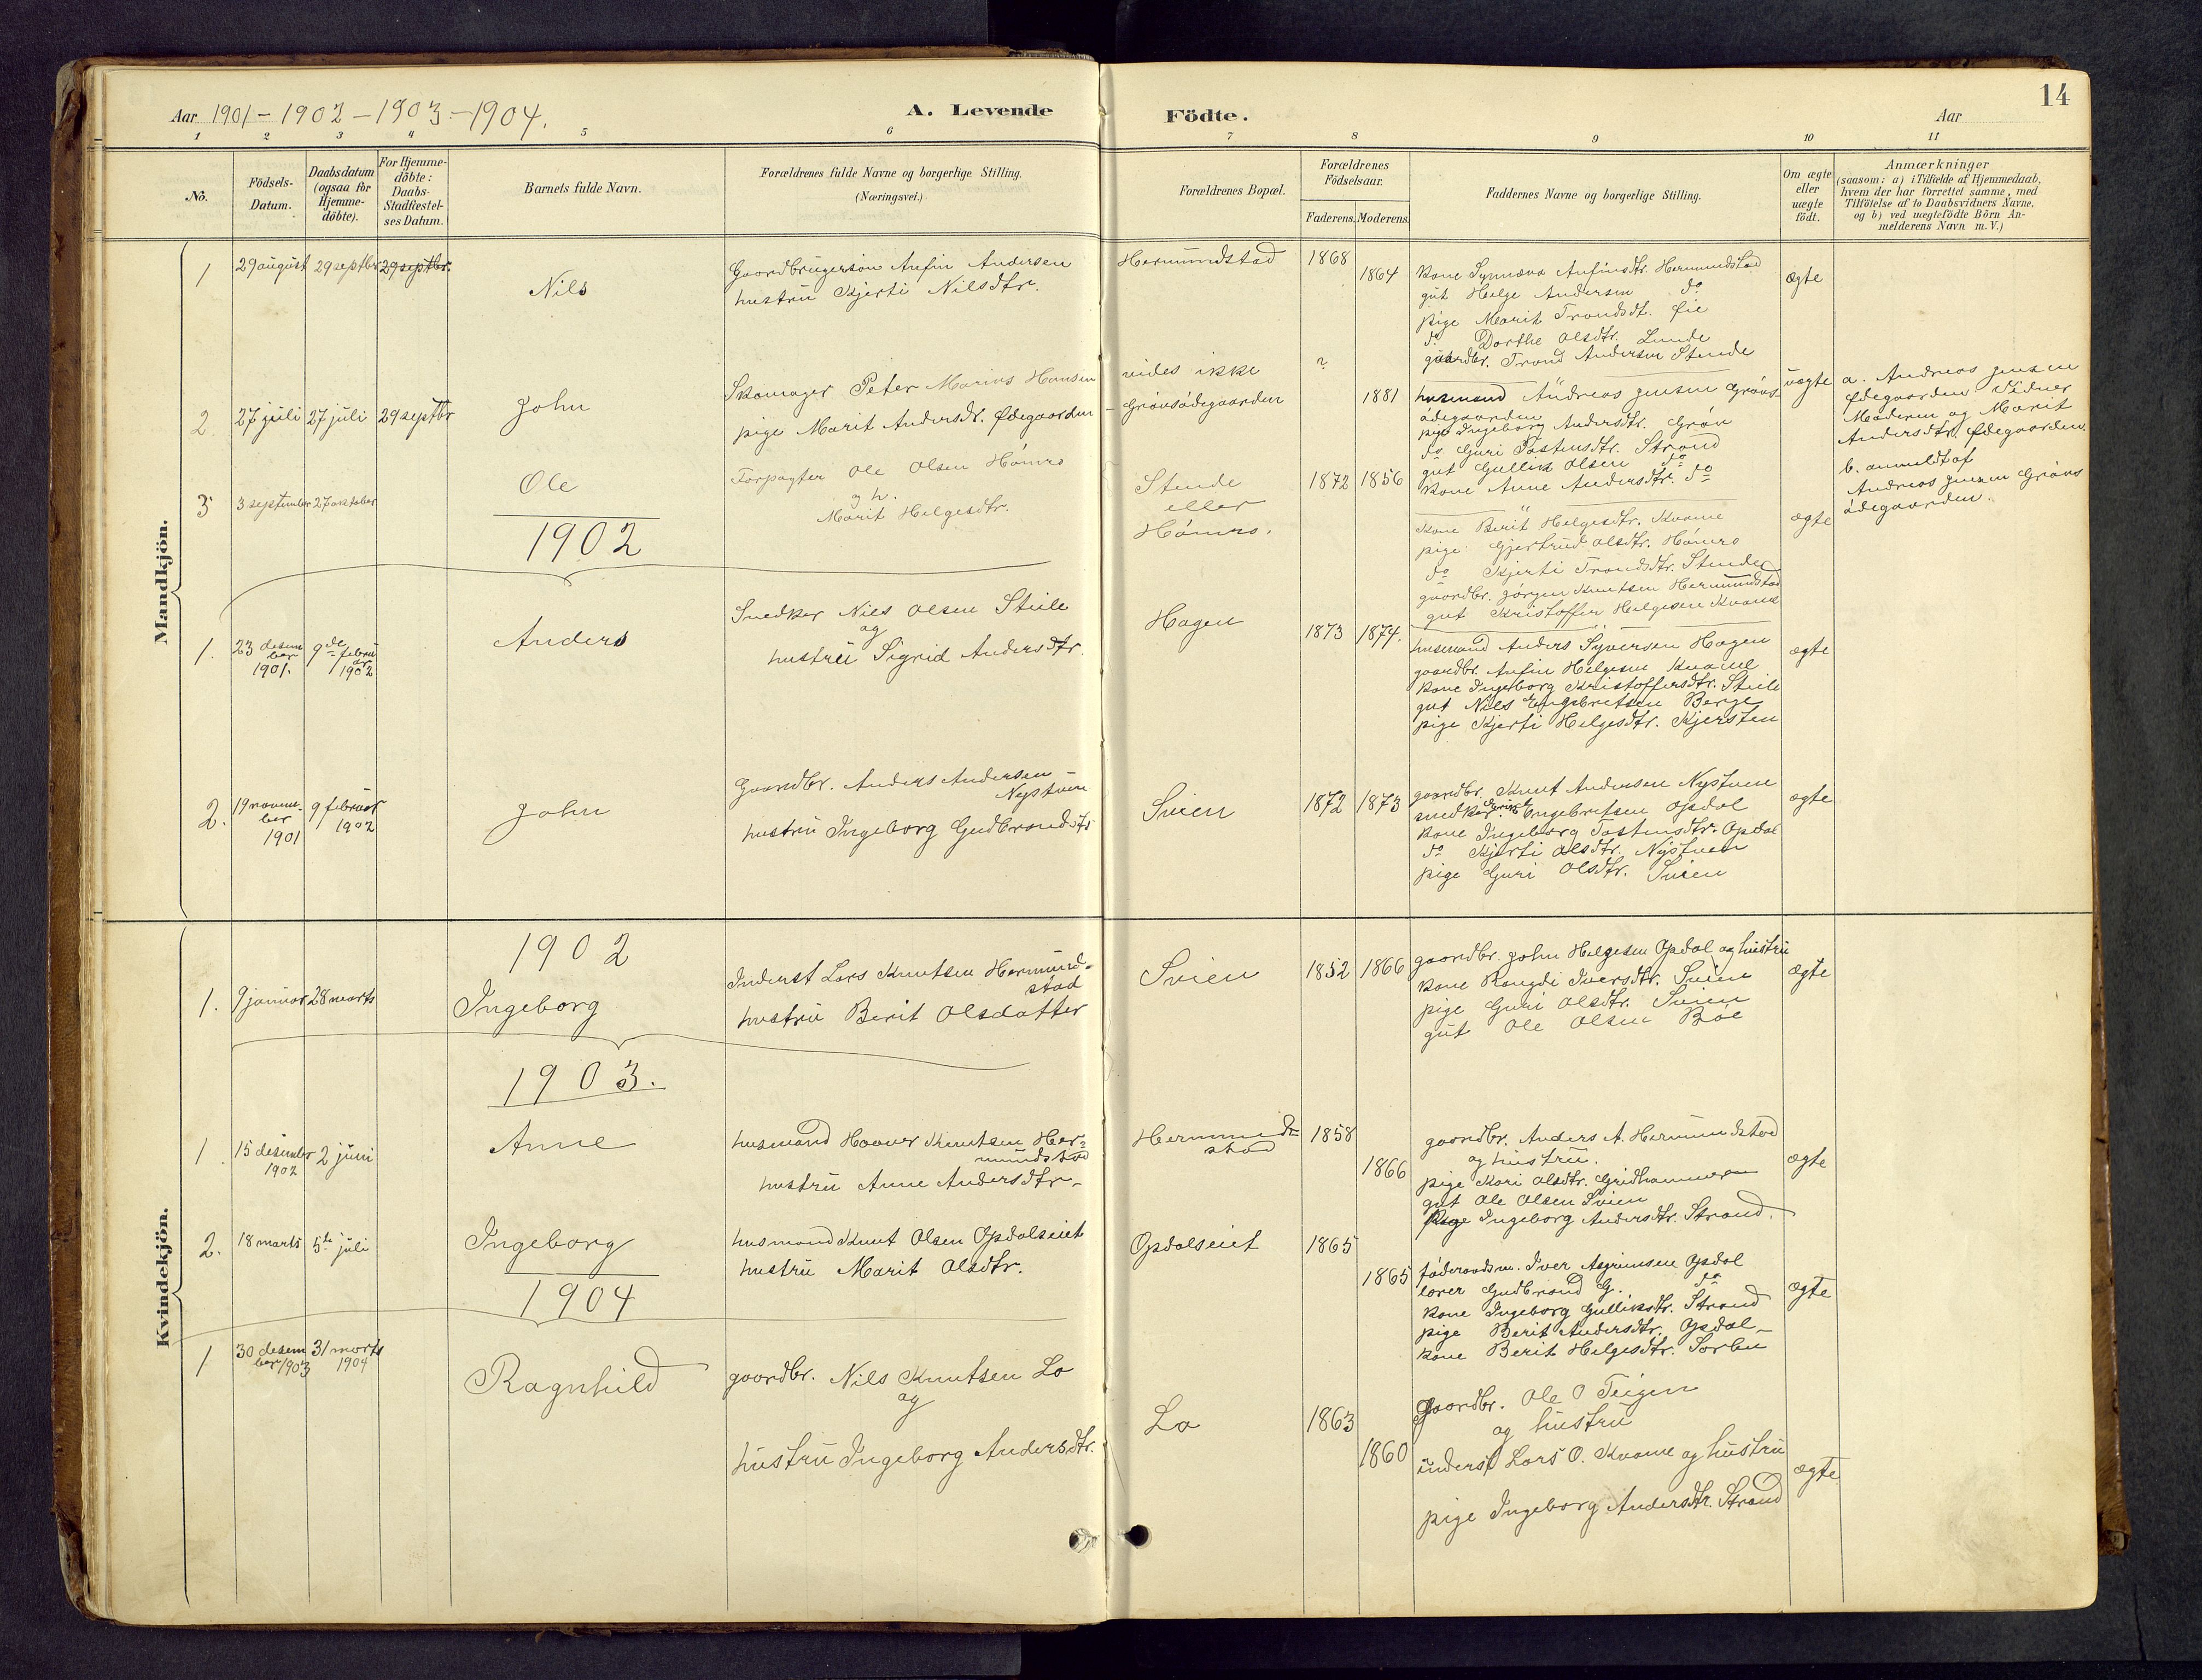 14
Aar 1901 - 1902 - 1903 - 1904.
A. Levende Födte.
Aar
1 2 3 4 5 6 7 8 9 10 11
No.
Födsels-
Datum.
Daabsdatum
(ogsaa for
Hjemme-
döbte).
For Hjemme-
döbte:
Daabs-
Stadfæstel-
ses Datum.
Barnets fulde Navn.
Forældrenes fulde Navne og borgerlige Stilling.
(Næringsvei.)
Forældrenes Bopæl.
Forældrenes
Födselsaar.
Faderens. Moderens.
Faddernes Navne og borgerlige Stilling.
Om ægte
eller
uægte
födt.
Anmærkninger
(saasom: a) i Tilfælde af Hjemmedaab,
hvem der har forrettet samme, med
Tilföielse af to Daabsvidners Navne,
og b) ved uægtefödte Börn An-
melderens Navn m. V.)
Mandkjön.
1
29 august
29 septbr
29 septbr.
Nils
Gaardbrugersøn Anfin Andersen
hustru Kjersti Nilsdtr.
Hermundstad
1868
1864
kone Synnøva Anfinsdtr. Hermundstad
gut Helge Andersen do
pige Marit Trondsdt. Øie
do Dorthe Olsdtr. Lunde
gaardbr. Trond Andersen Stende
ægte
2
27 juli
27 juli
29 septbr
John
Skomager Peter Marius Hansen
pige Marit Andersdr. Ødegaarden
vides ikke
Grønsødegaarden
?
1881
husmand Andreas Jensen Grøns-
ødegaarden
pige Ingeborg Andersdtr. Grøn
do Guri Tostensdtr. Strand
gut Gullik Olsen do
kone Anne Andersdtr. do
uægte
a. Andreas Jensen
Ødegaarden Vidner
Moderen og Marit
Andersdtr. Ødegaarden.
b. anmeldt af
Andreas Jensen Grøns
ødegaarden.
3
3 september
27 oktober
Ole
Forpagter Ole Olsen Hømro
og h.
Marit Helgesdtr.
Stende
eller
Hømro.
1872
1856
kone Berit Helgesdtr. Kvame
pige Gjertrud Olsdtr. Hømro
do Kjersti Trondsdtr. Stende
gaardbr. Jørgen Knutsen Hermundstad
gut Kristoffer Helgesen Kvame
ægte
1902
1.
23 desem
ber
1901.
9de febru
ar
1902
Anders
Snedker Nils Olsen Steile
og
hustru Sigrid Andersdtr.
Hagen
1873
1874.
husmand Anders Syversen Hagen
gaardbr. Anfin Helgesen Kvame
kone Ingeborg Kristoffersdtr. Steile
gut Nils Engebretsen Berge
pige Kjersti Helgesdtr. Kjersten
ægte
2.
19 novem-
ber
1901
9 februar
1902
John
Gaardbr. Anders Andersen
Nystuen
hustru Ingeborg Gudbrandsdtr
Svien
1872
1873
gaardbr. Knut Andersen Nystuen
snedker Engebretsen Opdal
kone Ingeborg Tostensdtr. Opdal
do Kjersti Olsdtr. Nystuen
pige Guri Olsdtr. Svien
ægte
Kvindekjön.
1902
1.
9 januar
28 marts
Ingeborg
Inderst Lars Knutsen Hermund-
stad
hustru Berit Olsdatter
Svien
1852
1866
gaardbr. John Helgesen Opdal og hustru
kone Rangdi Iversdtr. Svien
pige Guri Olsdtr. Svien
gut Ole Olsen Bøe
ægte
1903.
1
15 desember
1902
2 juni
Anne
husmand Haaver Knutsen Her-
mundstad
hustru Anne Andersdtr.
Hermund-
stad
1858
1866
gaardbr. Anders A. Hermundstad
og hustru.
pige Kari Olsdtr. Gridhammeren
gut Ole Olsen Svien
pige Ingeborg Andersdtr. Strand.
ægte
2.
18 marts
5te juli
Ingeborg
husmand Knut Olsen Opdalseiet
hustru Marit Olsdtr.
Opdalseiet
1865
1865
føderaadsm. Iver Asgrimsen Opdal
lærer Gudbrand G. do
kone Ingeborg Gulliksdtr. Strand
pige Berit Andersdtr. Opdal
kone Berit Helgesdtr. Sorben
ægte
1904
1
30 desem
ber 1903
31 marts
1904
Ragnhild
gaardbr. Nils Knutsen Lo
og
hustru Ingeborg Andersdtr.
Lo
1863
1860
Gaardbr. Ole O Teigen
og hustru
inderst Lars O. Kvame og hustru
pige Ingeborg Andersdtr. Strand
ægte